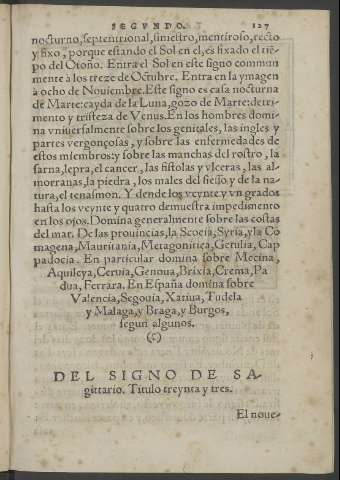 SEGVNDO. 127
nocturno, septentrional, siniestro, mentiroso, recto
y fixo, porque estando el Sol en el, es fixado el tiē-
po del Otoño. Entra el Sol en este signo commun
mente à los treze de Octubre. Entra en la ymagen
à ocho de Nouiembre. Este signo es casa nocturna
de Marte: cayda de la Luna, gozo de Marte: detri-
mento y tristeza de Venus. En los hombres domi-
na vniuersalmente sobre los genitales, las ingles y
partes vergonçosas, y sobre las enfermedades de
estos miembros: y sobre las manchas del rostro, la
sarna, lepra, el cancer, las fistolas y vlceras, las al-
morranas, la piedra, los males del siesso, y de la na-
tura, el tenasmon. Y dende los veynte y vn grados
hasta los veynte y quatro demuestra impedimento
en los ojos. Domina generalmente sobre las costas
del mar. De las prouincias, la Scocia, Syria, y la Co
magena, Mauritania, Metagonitica, Getulia, Cap
padocia. En particular domina sobre Mecina,
Aquileya, Ceruia, Genoua, Brixia, Crema, Pa
dua, Ferrara. En España domina sobre
Valencia, Segouia, Xatiua, Tudela
y Malaga, y Braga, y Burgos,
segun algunos.
DEL SIGNO DE SA-
gittario. Titulo treynta y tres.
El noue-